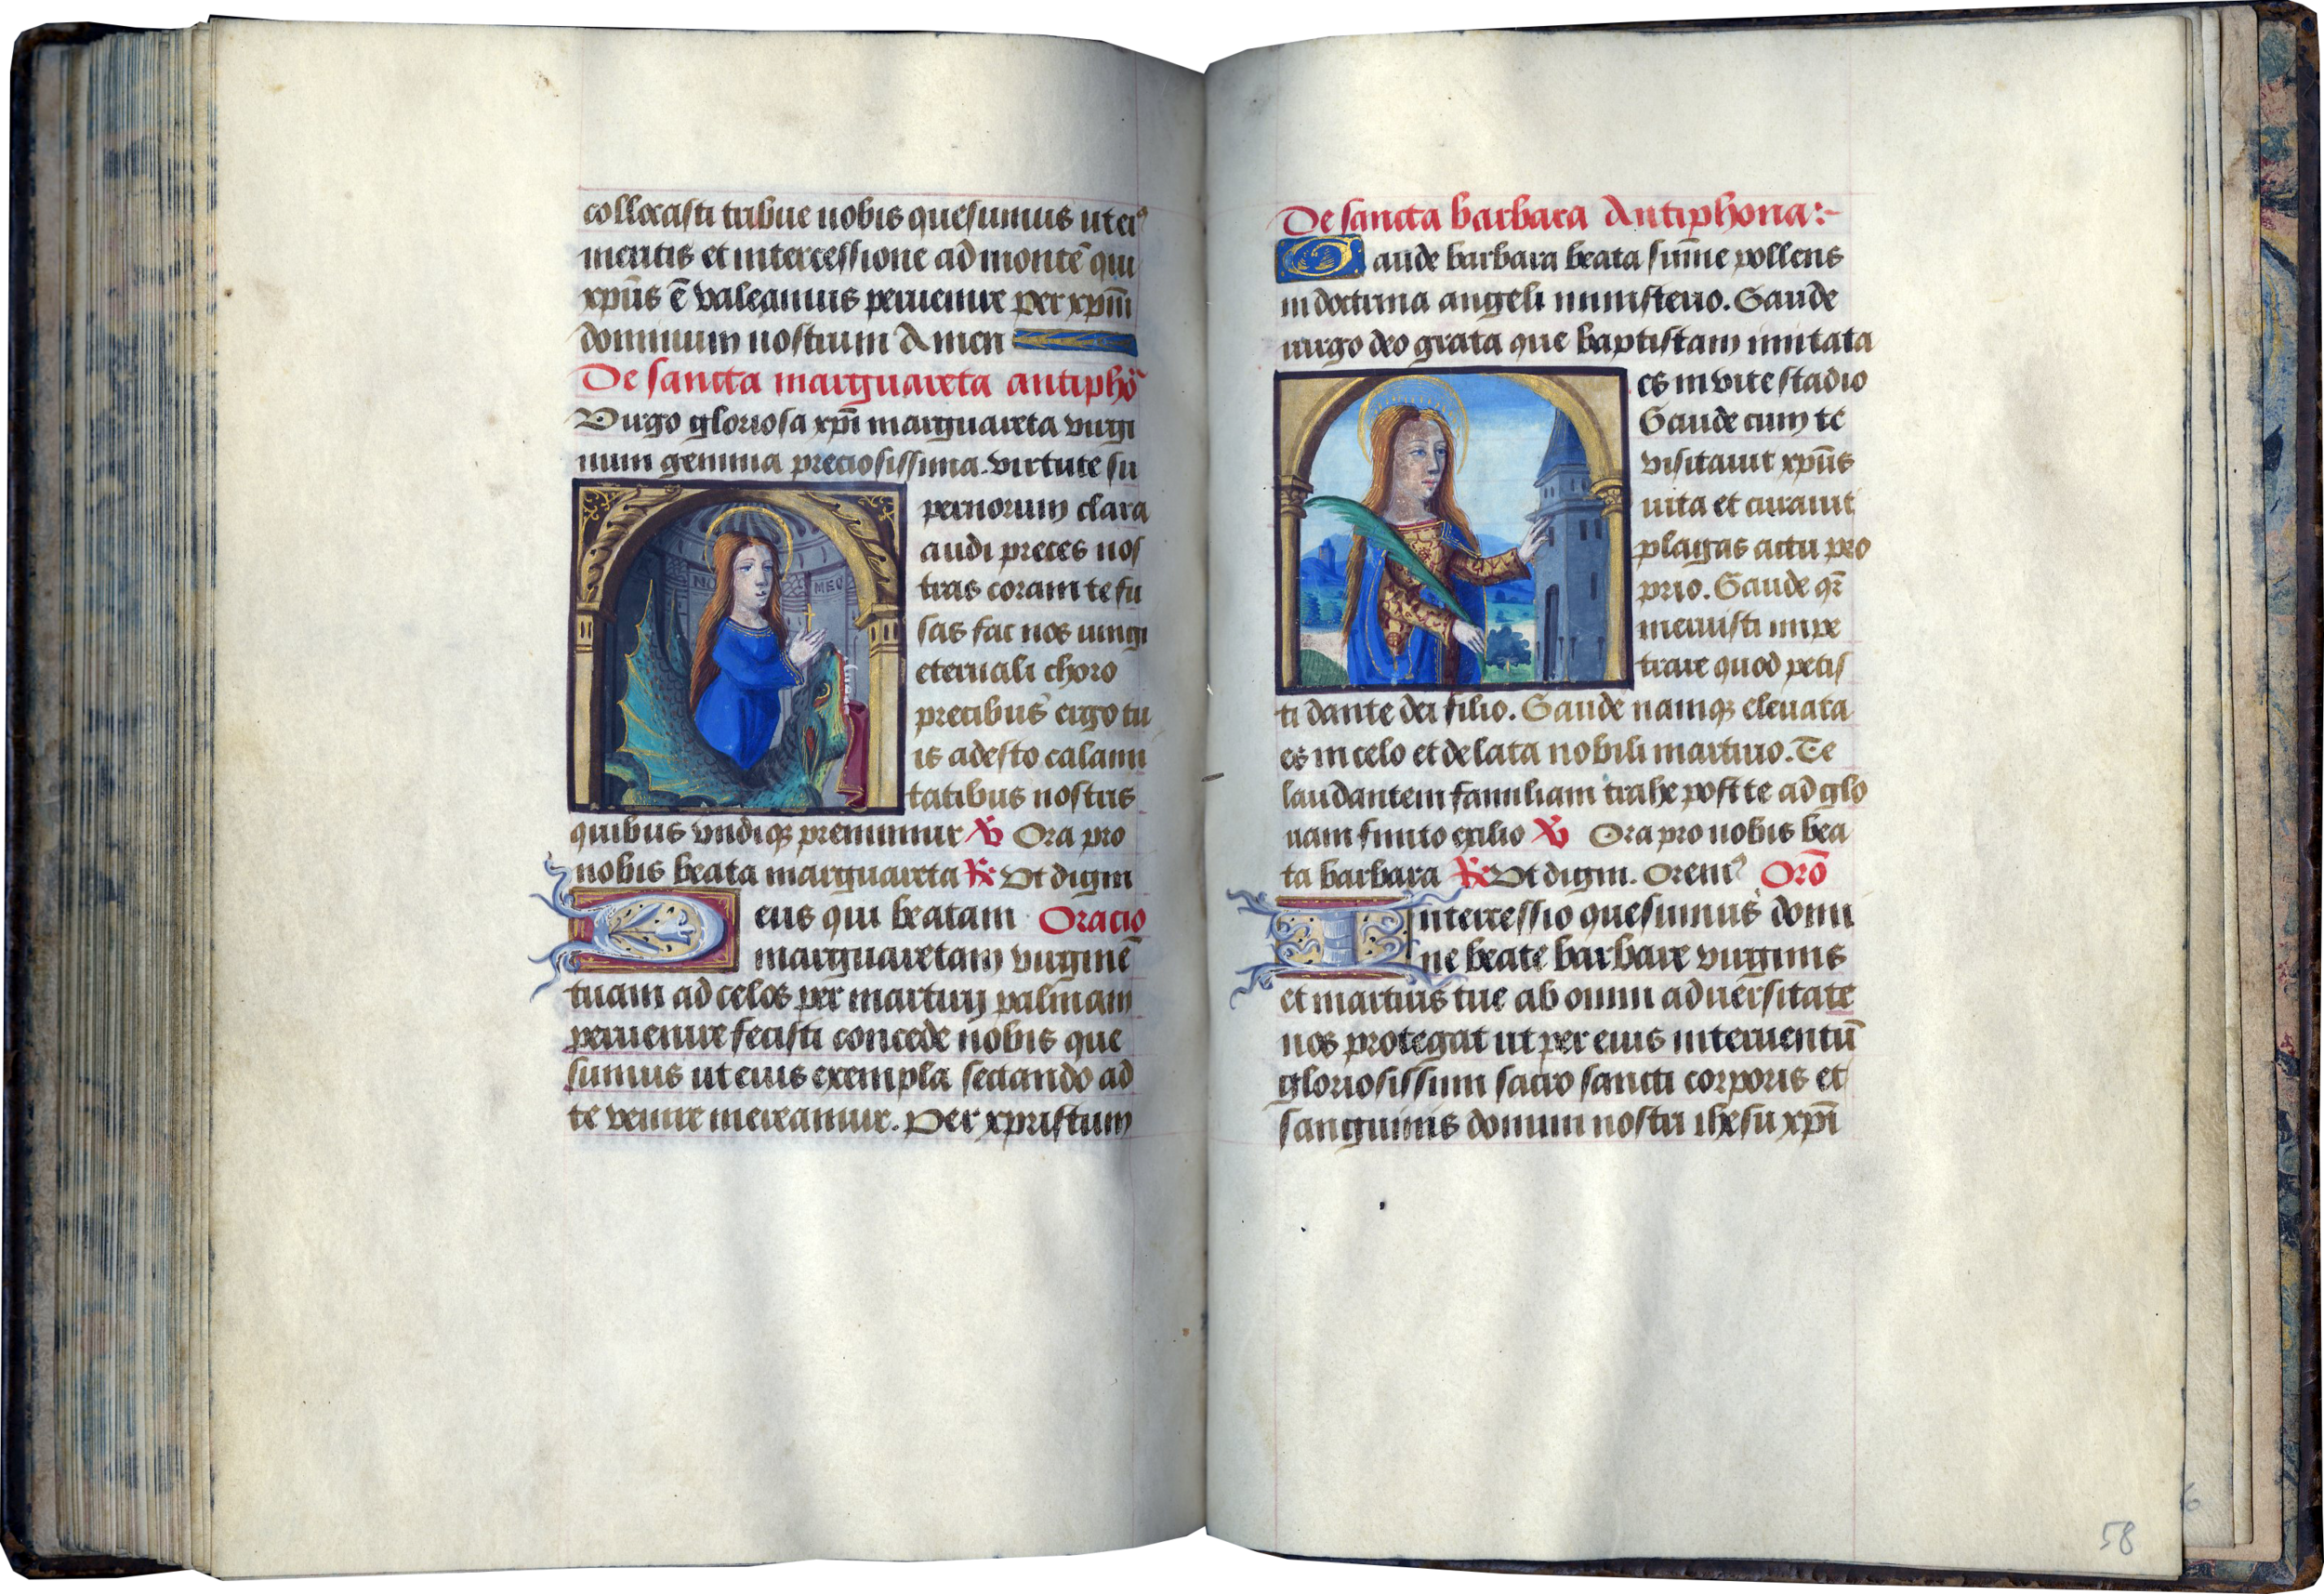 collocasti tribue nobis quesumus ut ei9
meritis et intercessione ad montē qui
xpūs ē valeamus peruenire per xpm̄
dominum nostrum Amen
De sancta marguareta antiphō
Virgo gloriosa xpī marguareta virgi
num gemma preciosissima. virtute su
NO
MEU
pernorum clara
audi preces nos
tras coram te fu
sas fac nos iungi
eternali choro
precibus ergo tu
is adesto calami
tatibus nostris
quibus vndiqꝫ premimur ℣ Ora pro
nobis beata marguareta ℟ Vt digni
Deus qui beatam Oracio
marguaretam virginē
tuam ad celos per martirij palmam
peruenire fecisti concede nobis que
sumus ut eius exempla sectando ad
te venire mereamur. Per xpristum
De sancta barbara Antiphona:~
Gaude barbara beata sum̄e pollens
in doctrina angeli ministerio. Gaude
uirgo deo grata que baptistam imitata
es in vite stadio
Gaude cum te
visitauit xpūs
uita et curauit
plagas actu pro
prio. Gaude qr̄
meruisti impe
trare quod petis
ti dante dei filio. Gaude namqꝫ eleuata
es in celo et delata nobili martirio. Te
laudantem familiam trahe post te ad glo
riam finito exilio ℣ Ora pro nobis bea
ta barbara ℟ Vt digni. Orem9 Orō
Intercessio quesumus domi
ne beate barbare virginis
et martiris tue ab omni aduersitate
nos protegat ut per eius interuentū
gloriosissimi sacro sancti corporis et
sanguinis domini nostri ihesu xpī
58